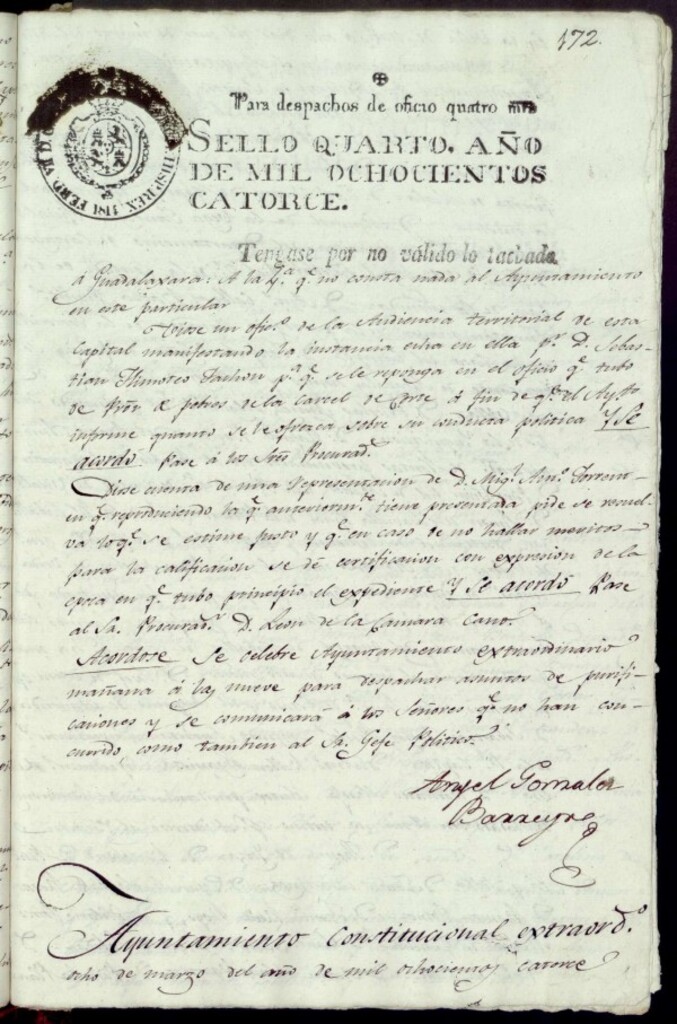 172.
Para despachos de oficio quatro mrs
SELLO QUARTO. AÑO
DE MIL OCHOCIENTOS
CATORCE.
HISP. REX. 1181 FERD. VII D. G.
Tengase por no válido lo tachado.
á Guadalaxara: A la 4.ª q.e no consta nada al Ayuntamiento
en este particular
Viose un ofic.º de la Audiencia territorial de esta
capital manifestando la instancia echa en ella p.r D. Sebas-
tian Timoteo p.ª q.e se le reponga en el oficio q.e tubo
de Pror de pobres de la carcel de Corte á fin de q.e el Ayto
informe quanto se le ofrezca sobre su conducta politica Y Se
acordó Pase á los Sres Procurad.s
Diose cuenta de una representacion de D. Mig.l Ant.º Torrent
en q.e reproduciendo la q.e anteriorm.te tiene presentada pide se resuel-
va lo q.e se estime justo y q.e en caso de no hallar meritos
para la calificacion se dé certificacion con expresion de la
epoca en q.e tubo principio el expediente Y Se acordó Pase
al Sr. Procurad.r D. Leon de la Camara Cano.
Acordose Se celebre Ayuntamiento extraordinario
mañana á las nueve para despachar asuntos de purifi-
caciones y se comunicará á los Señores q.e no han con-
currido como tambien al Sr. Gefe Politico.
Angel Gonzalez
Barreyro
Ayuntamiento Constitucional extraord.º
ocho de marzo del año de mil ochocientos catorce